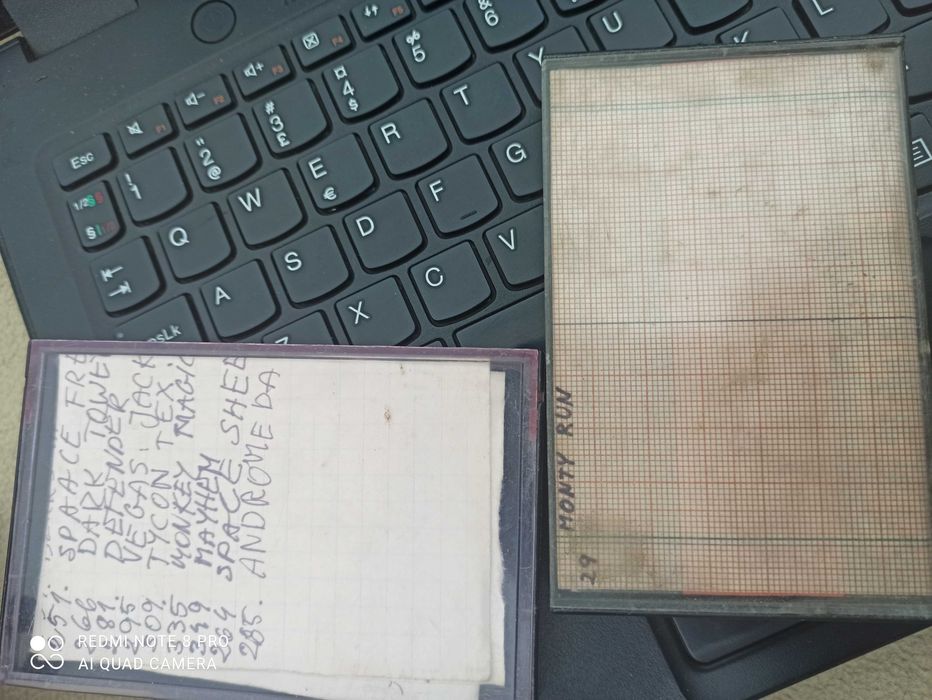 Esc
F1
F2
F3
F4
F5
1/2
§
!
1
"
2
@
#
3
£
¤
4
$
%
5
&
6
Q
W
E
€
R
T
Y
U
A
S
D
F
G
K
L
Z
X
C
V
psLk
51: SPAACE FRE
66 DARK TOWE
81 DEFENDER
295 VEGAS JACK
09. TYCON TEX
335 MONKEY MAGIC
349 MAYHEM
264 SPACE SHEE
285. ANDROMEDA
29 MONTY RUN
REDMI NOTE 8 PRO
AI QUAD CAMERA